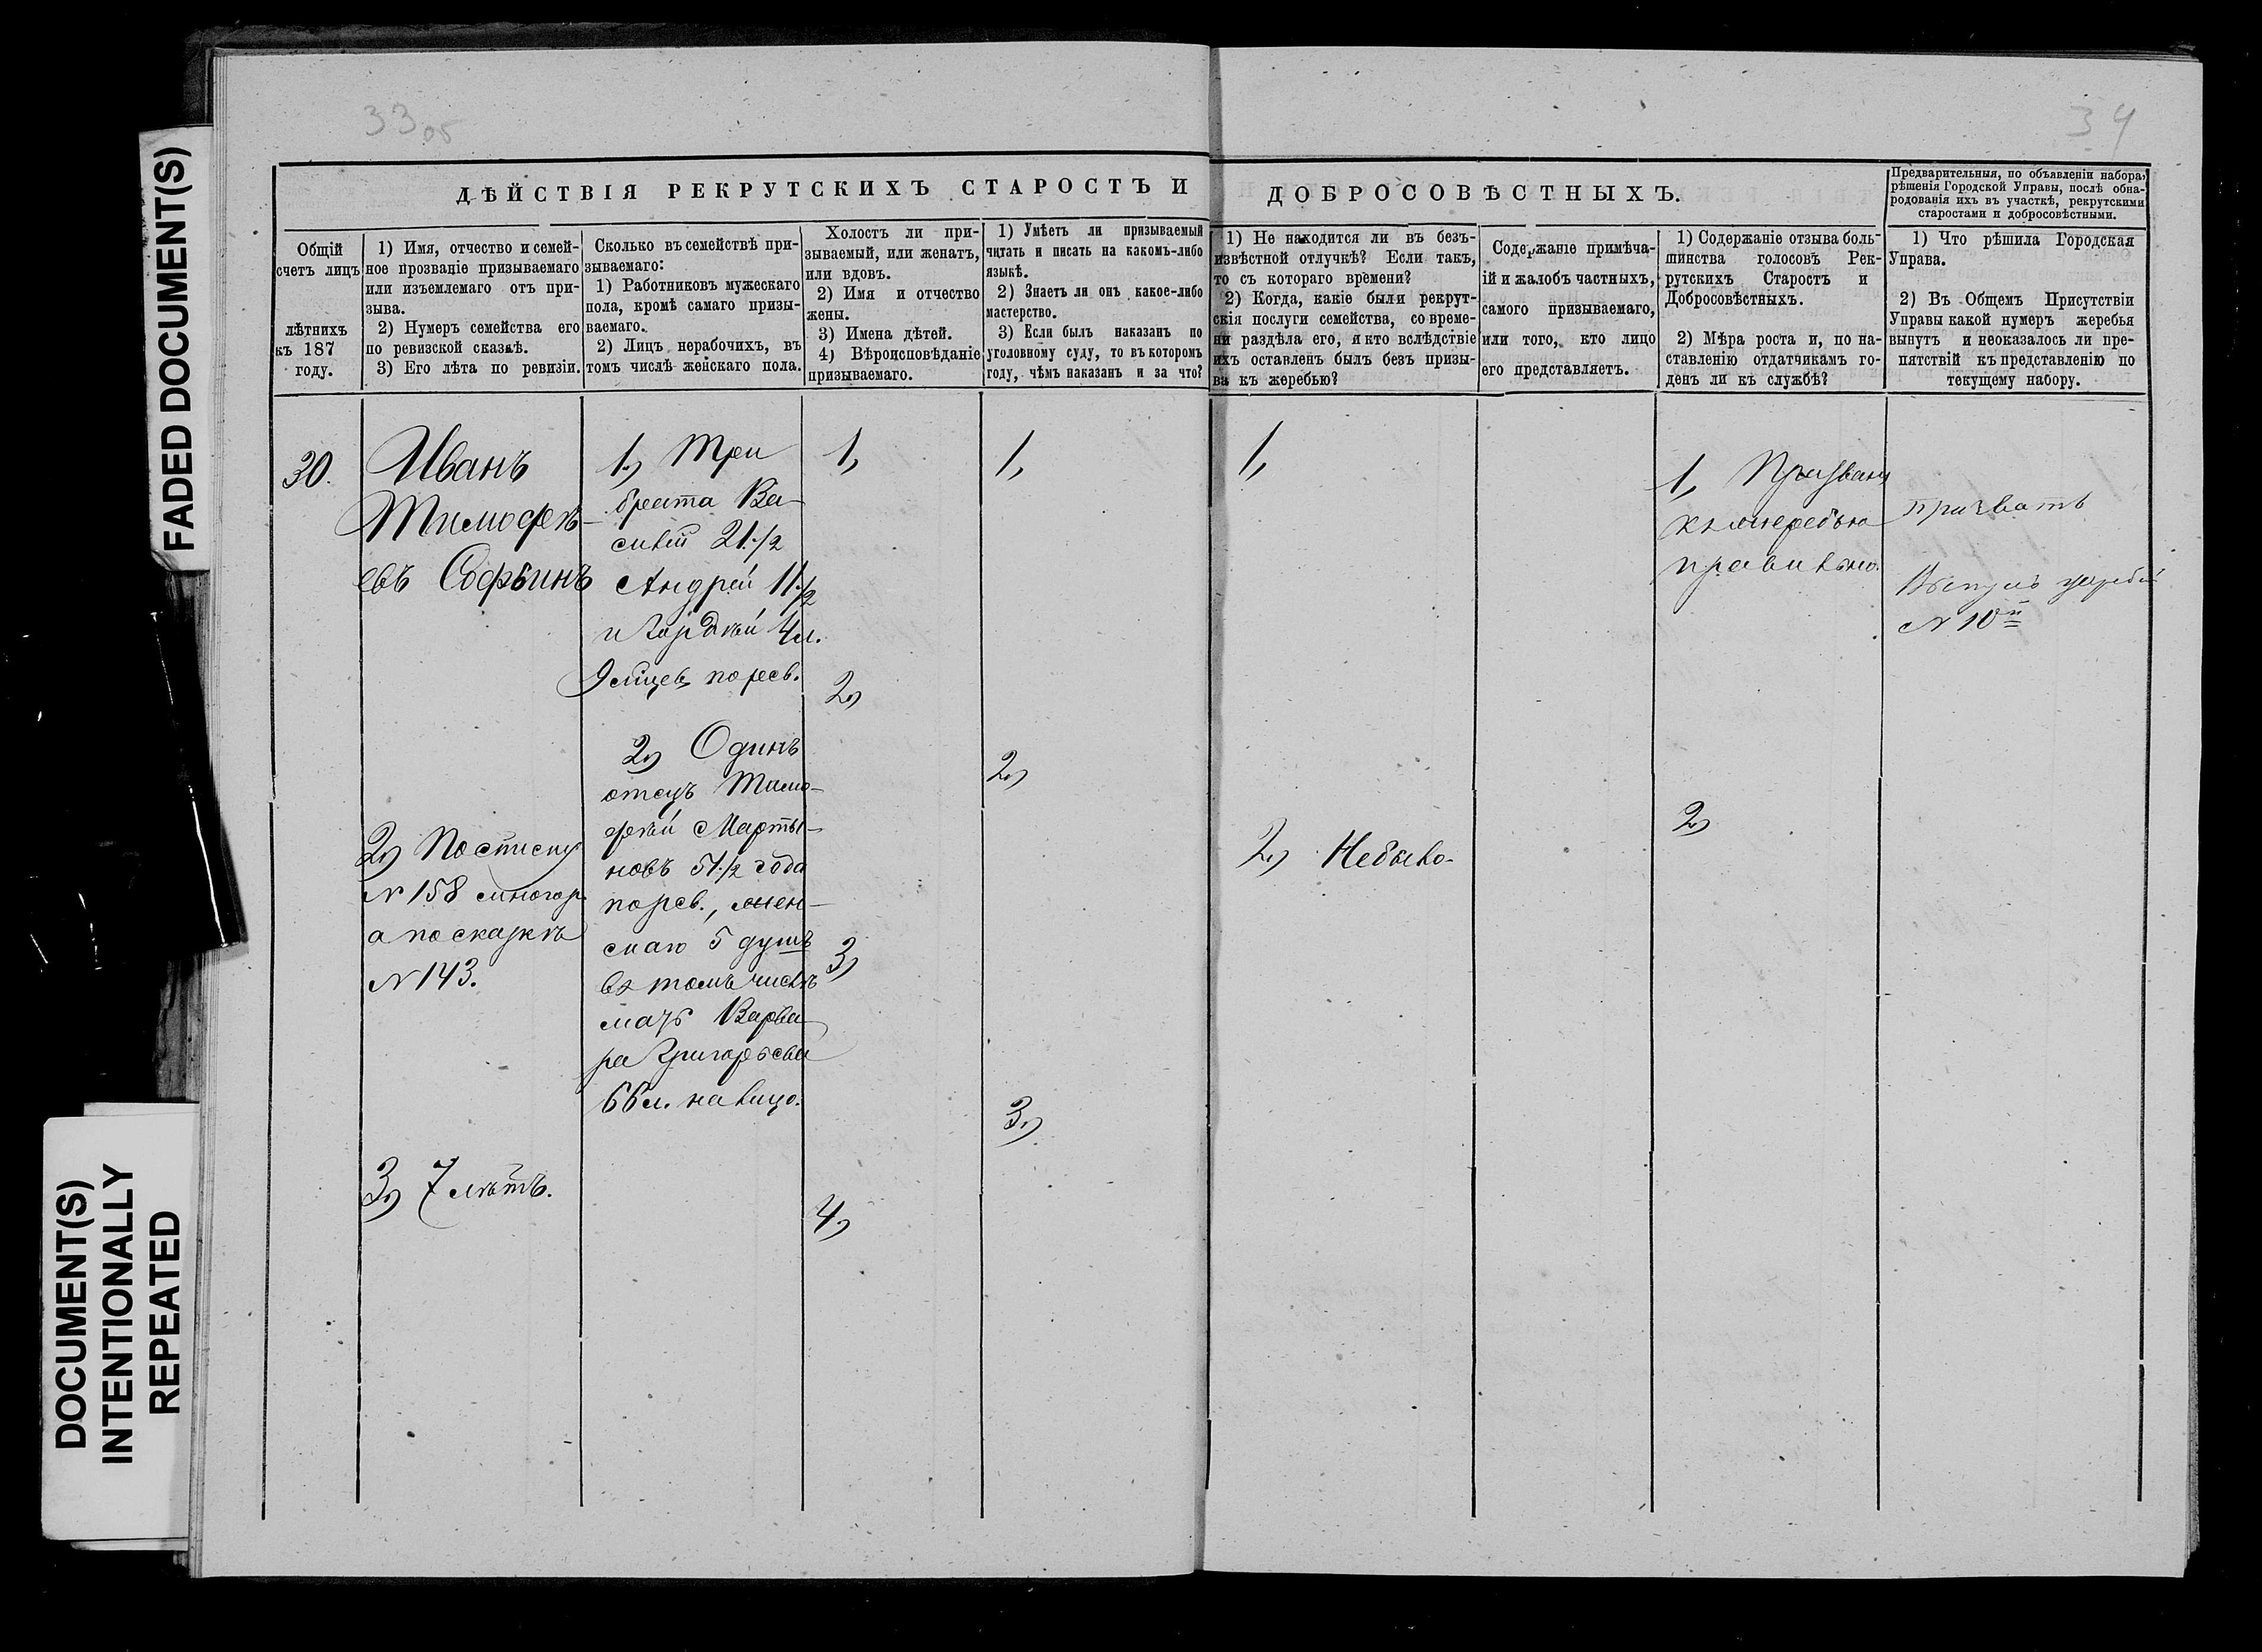 FADED DOCUMENT(S)
DOCUMENT(S)
INTENTIONALLY
REPEATED
33 об
34
ДѢЙСТВІЯ РЕКРУТСКИХЪ СТАРОСТЪ И ДОБРОСОВѢСТНЫХЪ.
Предварительныя, по объявленіи набора,
рѣшенія Городской Управы, послѣ обна-
родованія ихъ въ участкѣ, рекрутскими
старостами и добросовѣстными.
Общій
счетъ лицъ
лѣтнихъ
къ 187
году.
1) Имя, отчество и семей-
ное прозваніе призываемаго
или изъемлемаго отъ при-
зыва.
2) Нумеръ семейства его
по ревизской сказкѣ.
3) Его лѣта по ревизіи.
Сколько въ семействѣ при-
зываемаго:
1) Работниковъ мужескаго
пола, кромѣ самаго призы-
ваемаго.
2) Лицъ нерабочихъ, въ
томъ числѣ женскаго пола.
Холостъ ли при-
зываемый, или женатъ,
или вдовъ.
2) Имя и отчество
жены.
3) Имена дѣтей.
4) Вѣроисповѣданіе
призываемаго.
1) Умѣетъ ли призываемый
читать и писать на какомъ-либо
языкѣ.
2) Знаетъ ли онъ какое-либо
мастерство.
3) Если былъ наказанъ по
уголовному суду, то въ которомъ
году, чѣмъ наказанъ и за что?
1) Не находится ли въ безъ-
извѣстной отлучкѣ? Если такъ,
то съ котораго времени?
2) Когда, какіе были рекрут-
скія послуги семейства, со време-
ни раздѣла его, и кто вслѣдствіе
ихъ оставленъ былъ безъ призы-
ва къ жеребью?
Содержаніе примѣча-
ній и жалобъ частныхъ,
самого призываемаго,
или того, кто лицо
его представляетъ.
1) Содержаніе отзыва боль-
шинства голосовъ Рек-
рутскихъ Старостъ и
Добросовѣстныхъ.
2) Мѣра роста и, по на-
ставленію отдатчикамъ го-
денъ ли къ службѣ?
1) Что рѣшила Городская
Управа.
2) Въ Общемъ Присутствіи
Управы какой нумеръ жеребья
вынутъ и неоказалось ли пре-
пятствій къ представленію по
текущему набору.
30.
Иванъ
Тимофѣ-
евъ Софьинъ
2) По списку
№ 158
а по сказкѣ
№ 143.
3) 7 лѣтъ.
1) Три
брата Ва-
силій 21 1/2
Андрей 11 1/2
и Гордѣй 4 л.
9 мѣсяцевъ по рев.
2) Одинъ
отецъ Тимо-
фѣй Марты-
новъ 51 1/2 года
по рев., жен-
скаго 5 душъ
въ томъ числѣ
мать Варва-
ра Григорьева
66 л. на лицо.
1,
2)
3)
4)
1,
2)
3)
1,
2) Небыло.
1, Призванъ
къ жеребью
правильно.
2)
призвать
Вынулъ жребій
№ 10й